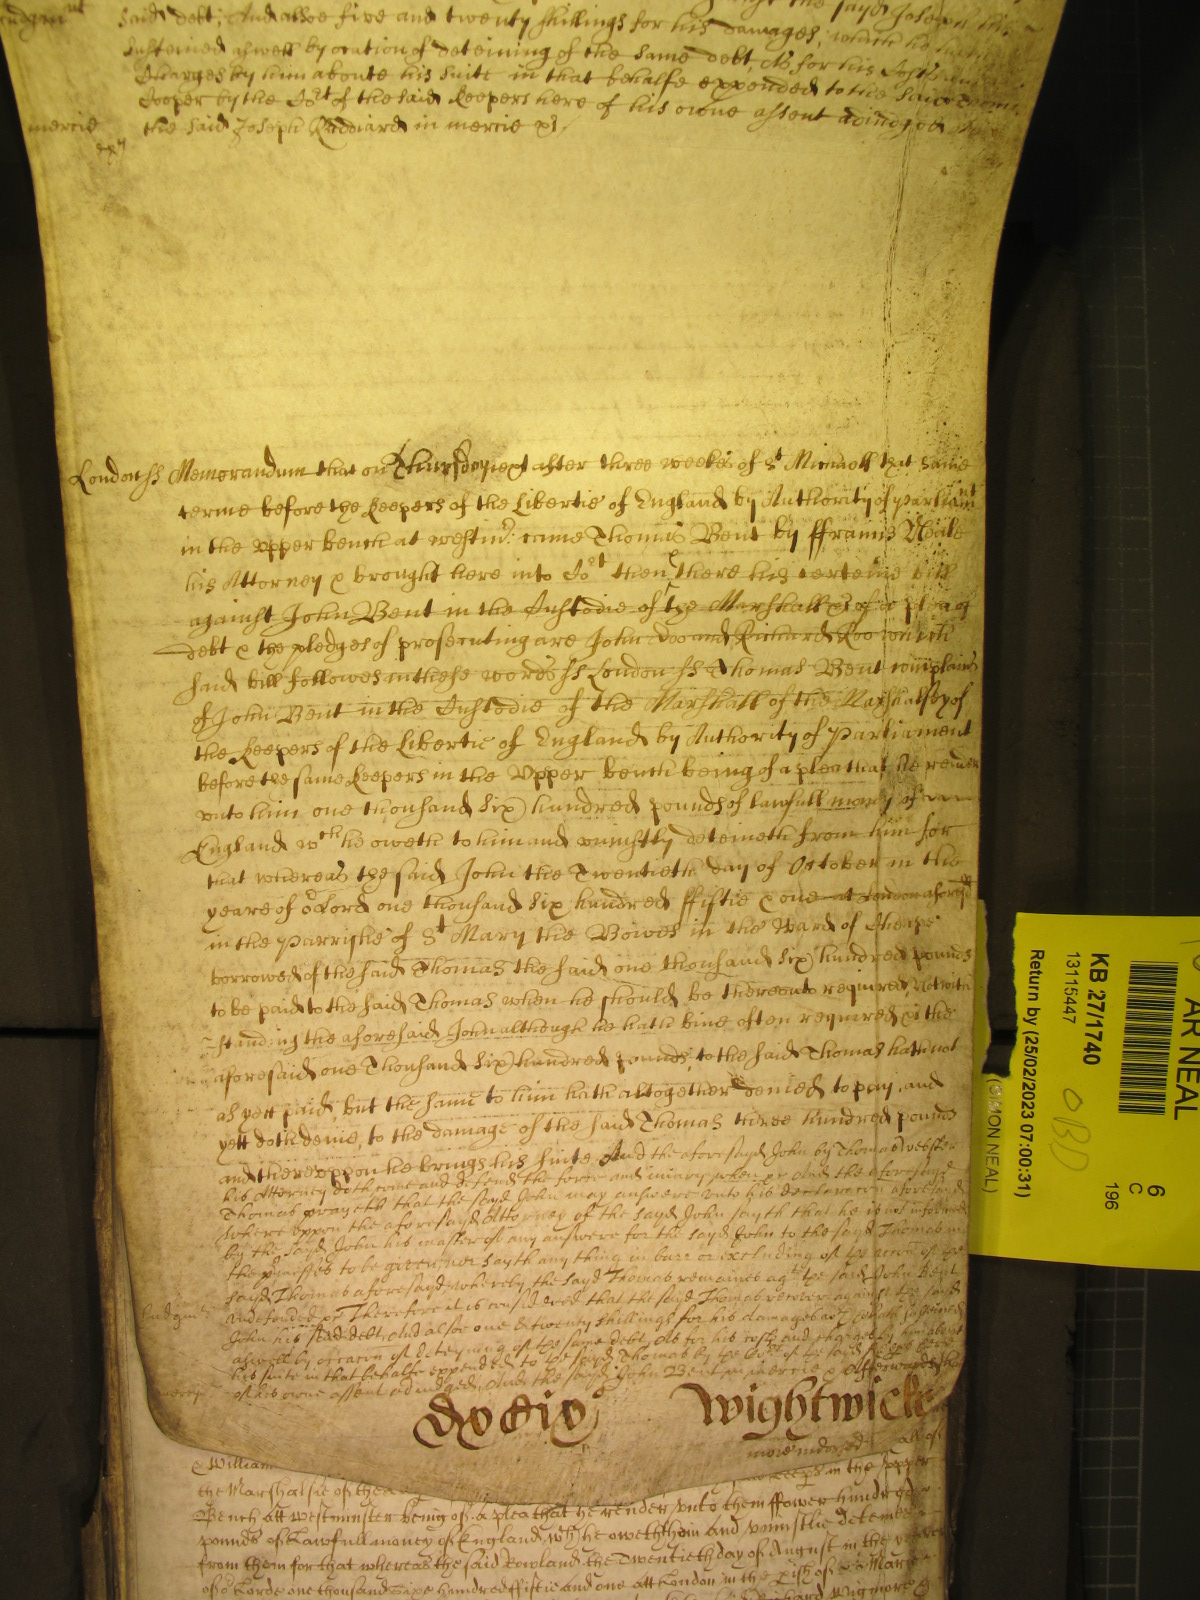 said debt; And allsoe five and twenty shillings for his damages, which he hath
susteined aswell by occation of deteining of the same debt, As for his Costs and
Charges by him aboute his suite in that behalfe expended to the said
Cooper by the Cort of the said Keepers here of his owne assent adiudged
mercie the said Joseph in mercie &c
London ss Memorandum that on Thursday next after three weekes of St Michaell that same
terme before the Keepers of the Libertie of England by Authority of Parliamt
in the upper bench at westmr: came Thomas Bent by ffrancis
his Attorney & brought here into Cort then & there his certeine bill
against John Bent in the Custodie of the Marshall &c of a plea of
debt & the pledges of prosecuting are John Doo and Richard Roo which
said bill followes in these words ss London ss Thomas Bent complaines
of John Bent in the Custodie of the Marshall of the Marshalsey of
the Keepers of the Libertie of England by Authority of Parliament
before the same Keepers in the Upper bench being of a plea that he render
unto him one thousand six hundred pounds of lawfull money of
England wch he oweth to him and uniustly deteineth from him for
that whereas the said John the Twentieth day of October in the
yeare of or Lord one thousand six hundred ffiftie & one at London aforesd
in the Parrishe of St Mary the Bowes in the Ward of Cheape
borrowed of the said Thomas the said one thousand six hundred pounds
to be paid to the said Thomas when he should be thereunto required, Notwith
standing the aforesaid John although he hath bine often required &c the
aforesaid one Thousand six hundred pounds, to the said Thomas hath not
as yett paid, but the same to him hath altogether denied to pay, and
yett doth denie, to the damage of the said Thomas three hundred pounds
and thereuppon he brings his suite And the aforesayd John by Thomas
his Attorney doth come and defend the force and iniury when &c And the aforesayd
Thomas prayeth that the sayd John may answere unto his declaracon aforesayd
where uppon the aforesayd Attorney of the sayd John sayth that he is not informed
by the sayd John his master of any answere for the sayd John to the sayd Thomas in
the p'misses to be given, nor sayth any thing in barr or excluding of the accon of the
sayd Thomas aforesayd, whereby the sayd Thomas remaines agt the said John Bent
undefended &c Therefore it is considered that the sayd Thomas recover against the said
John his debt, And alsoe one & twenty shillings for his damages wch he hath susteined
aswell by occacon of deteyning of the same debt, As for his costs and charges by him about
his suite in that behalfe expended to the sayd Thomas by the Cort of the said Keepers here
of his owne assent adiudged, And the sayd John Bent in mercie &c Afterwards
Wightwick
more indorsed
& William
the Marshalsie of the Keeps in the upper
Bench att Westminster being of a plea that he render unto them ffower hundred
pounds of Lawfull money of England, wch he oweth them and uniustlie deteineth
from them for that whereas the said Rowland the Twentieth day of August in the yeare
of or Lorde one thousand Sixe hundred ffiftie and one att London in the p'ish of St Marie
Wigmore
AR NEAL
6
C
196
KB 27/1740
13115447
OBD
Return by (25/02/2023 07:00:31)
(SIMON NEAL)